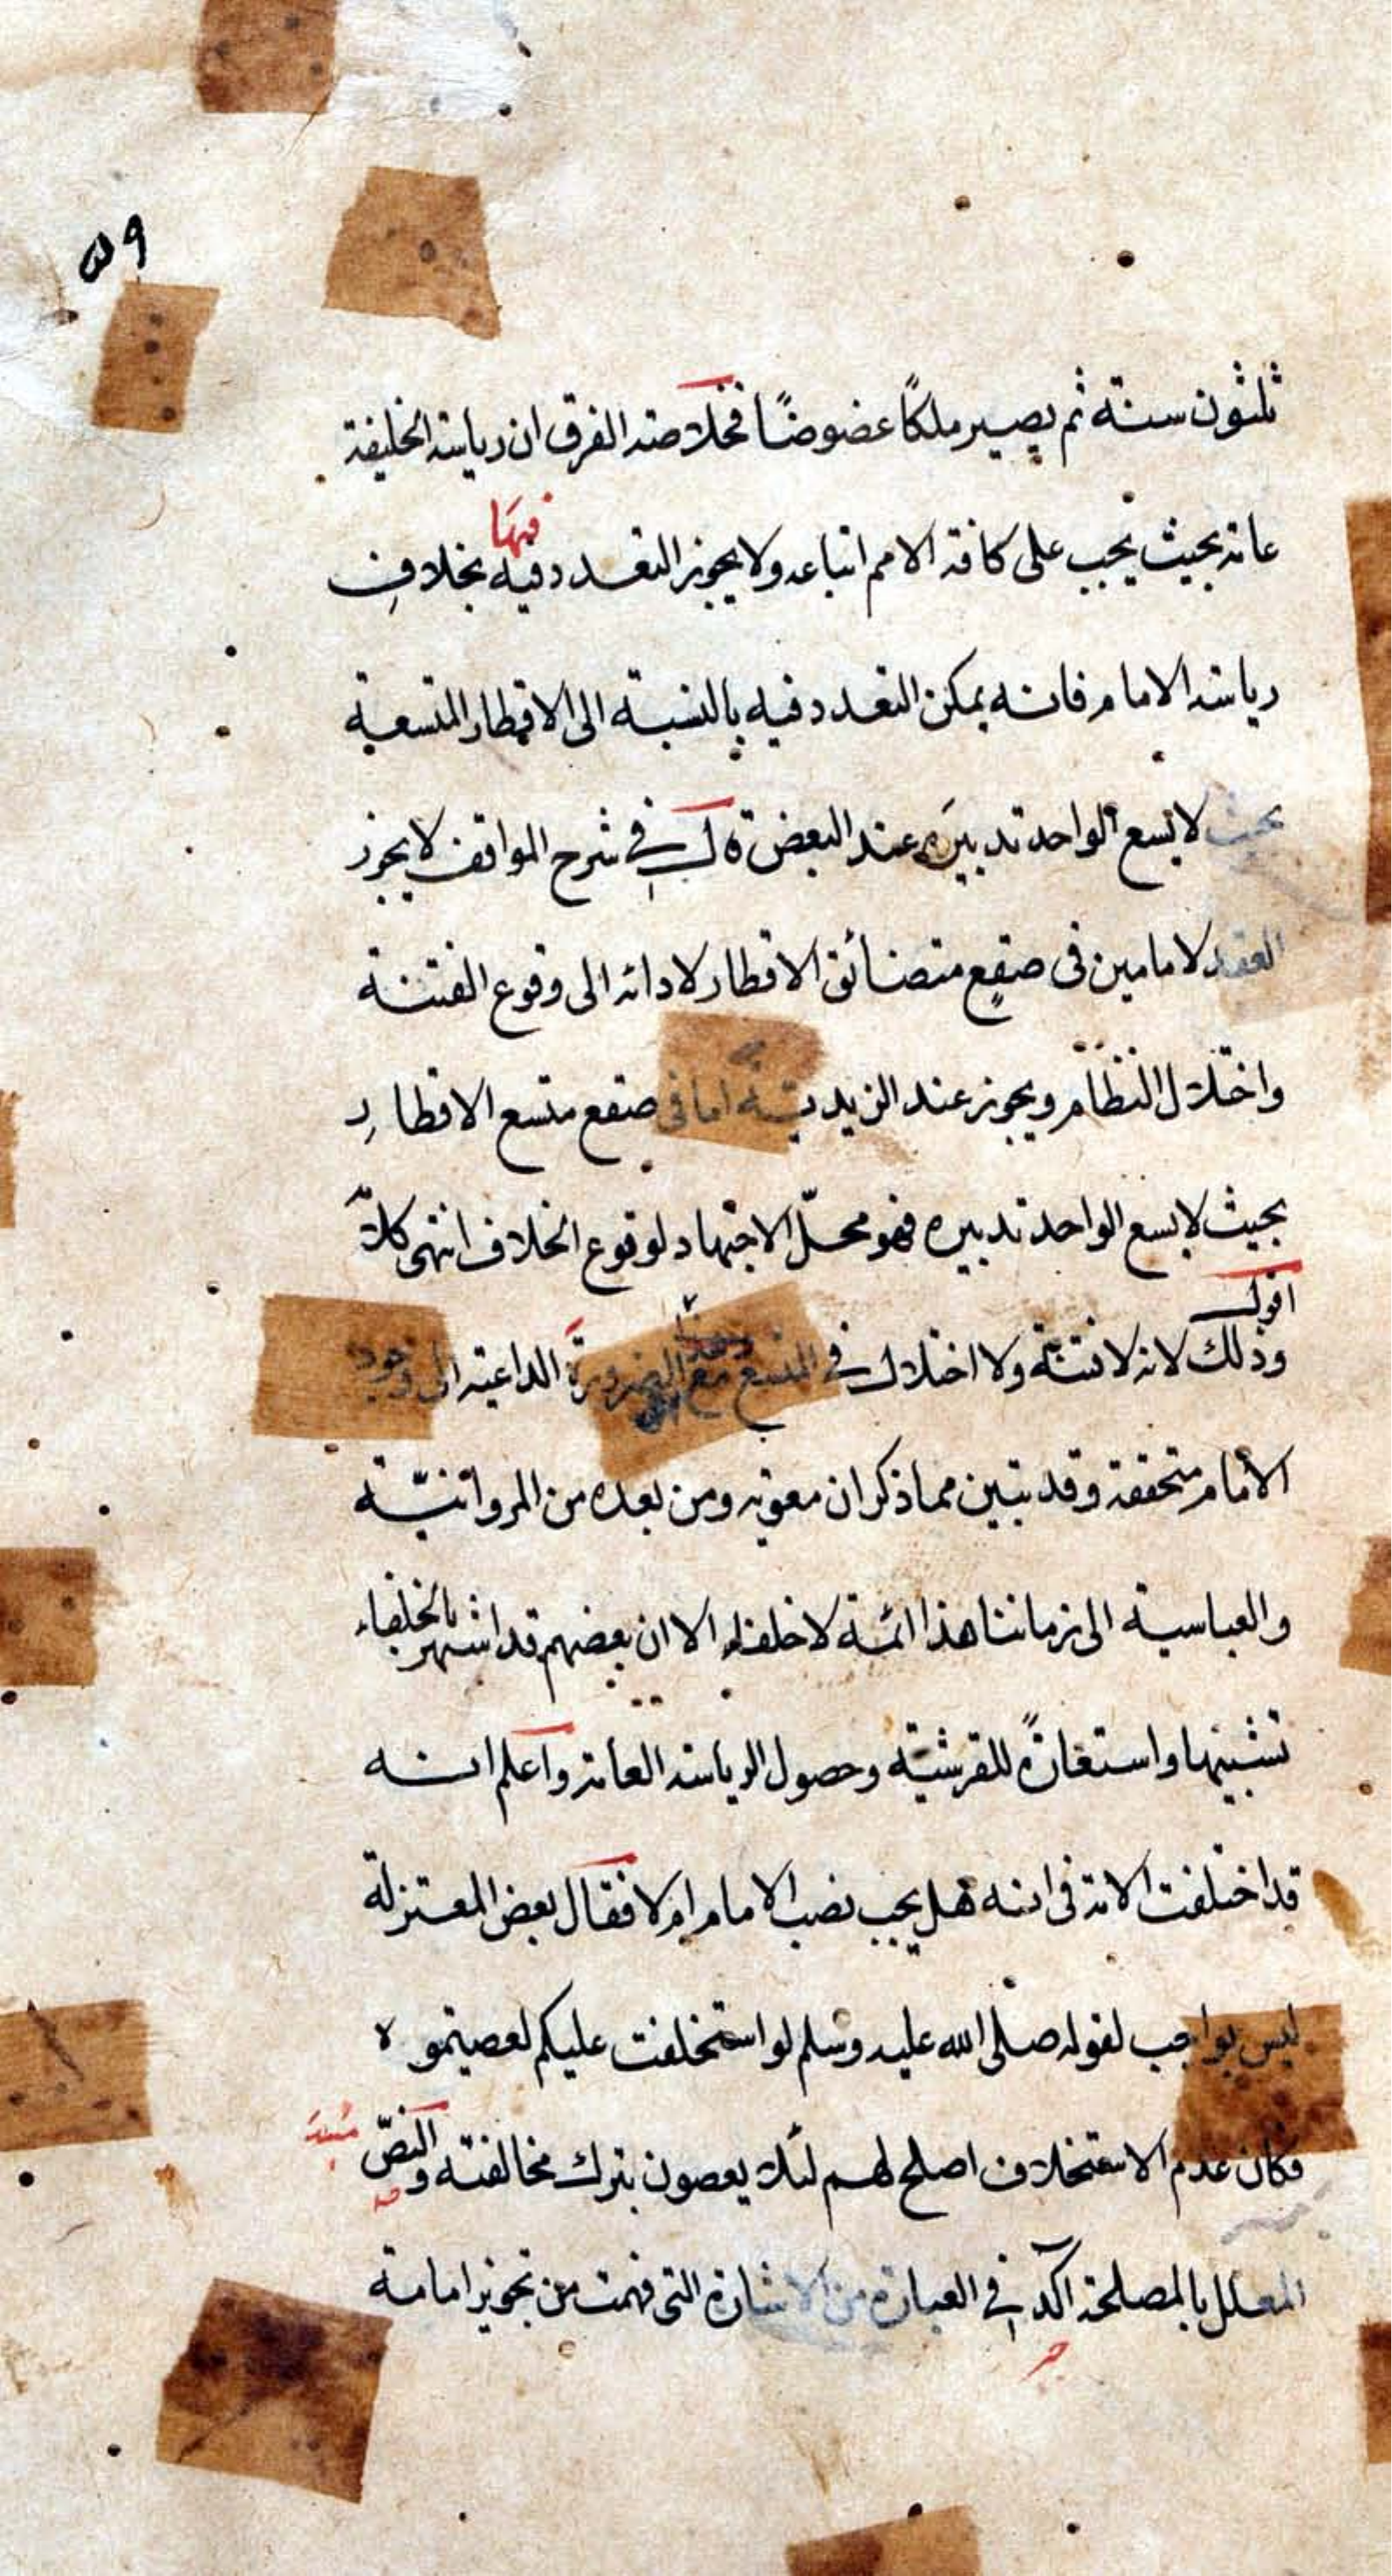 ثلثون سنة ثم يصير ملكًا عضوضًا فخلاصة الفرق ان رياسة الخليفة
فيها
عامة بحيث يجب على كافة الامم اتباعه ولا يجوز التعدد فيه بخلاف
رياسة الامام فانه يمكن التعدد فيه بالنسبة الى الاقطار المتسعة
بحيث لا يسع الواحد تدبيره عند البعض قال في شرح المواقف لا يجوز
العقد لامامين في صقع متضائق الاقطار لادائه الى وقوع الفتنة
واختلال النظام ويجوز عند الزيدية اما في صقع متسع الاقطار
بحيث لا يسع الواحد تدبيره فهو محلّ الاجتهاد لوقوع الخلاف انتهى كلامه
اقول
وذلك لانه لا فتنة ولا اختلال في المتسع مع الضرورة الداعية الى وجود
الامام متحققة وقد تبين مما ذكر ان معوية ومن بعده من المروانيّة
والعباسية الى زماننا هذا ائمة لا خلفاء الا ان بعضهم قد اشتهر بالخلفاء
تشبيها واستعارةً للقرشية وحصول الرياسة العامة واعلم انه
قد اختلفت الامة في انه هل يجب نصب الامام ام لا فقال بعض المعتزلة
ليس بواجب لقوله صلى الله عليه وسلم لو استخلفت عليكم لعصيتموه
فكان عدم الاستخلاف اصلح لهم لئلا يعصون بترك مخالفته والنصّ
المعلل بالمصلحة آكد في العبارة من الاشارة التي فهمت من تجويز امامة